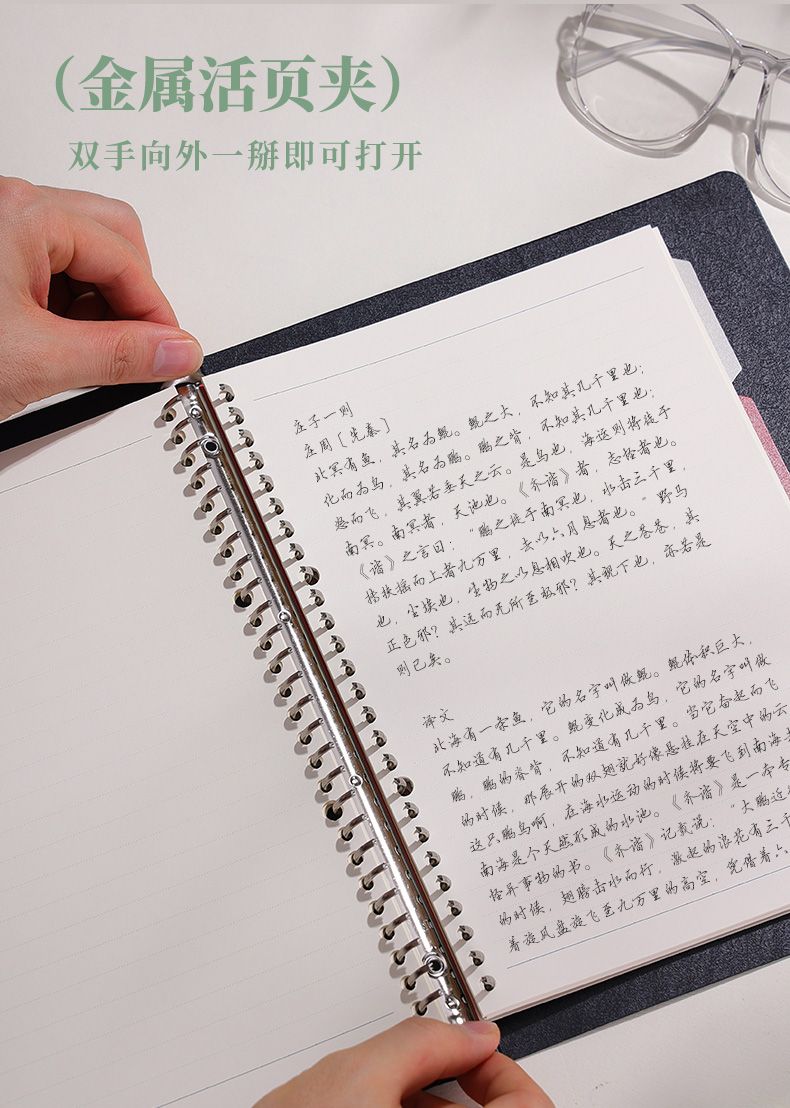 （金属活页夹）
双手向外一掰即可打开
庄子一则
庄周［先秦］
北冥有鱼，其名为鲲。鲲之大，不知其几千里也；
化而为鸟，其名为鹏。鹏之背，不知其几千里也；
怒而飞，其翼若垂天之云。是鸟也，海运则将徙于
南冥。南冥者，天池也。《齐谐》者，志怪者也。
《谐》之言曰：“鹏之徙于南冥也，水击三千里，
抟扶摇而上者九万里，去以六月息者也。”野马
也，尘埃也，生物之以息相吹也。天之苍苍，其
正色邪？其远而无所至极邪？其视下也，亦若是
则已矣。
译文
北海有一条鱼，它的名字叫做鲲。鲲体积巨大，
不知道有几千里。鲲变化成为鸟，它的名字叫做
鹏，鹏的脊背，不知道有几千里。当它奋起而飞
的时候，那展开的双翅就好像悬挂在天空中的云
这只鹏鸟啊，在海水运动的时候将要飞到南海去
南海是个天然形成的水池。《齐谐》是一本专
怪异事物的书。《齐谐》记载说：“大鹏近
的时候，翅膀击水而行，激起的浪花有三千
着旋风盘旋飞至九万里的高空，凭借着六